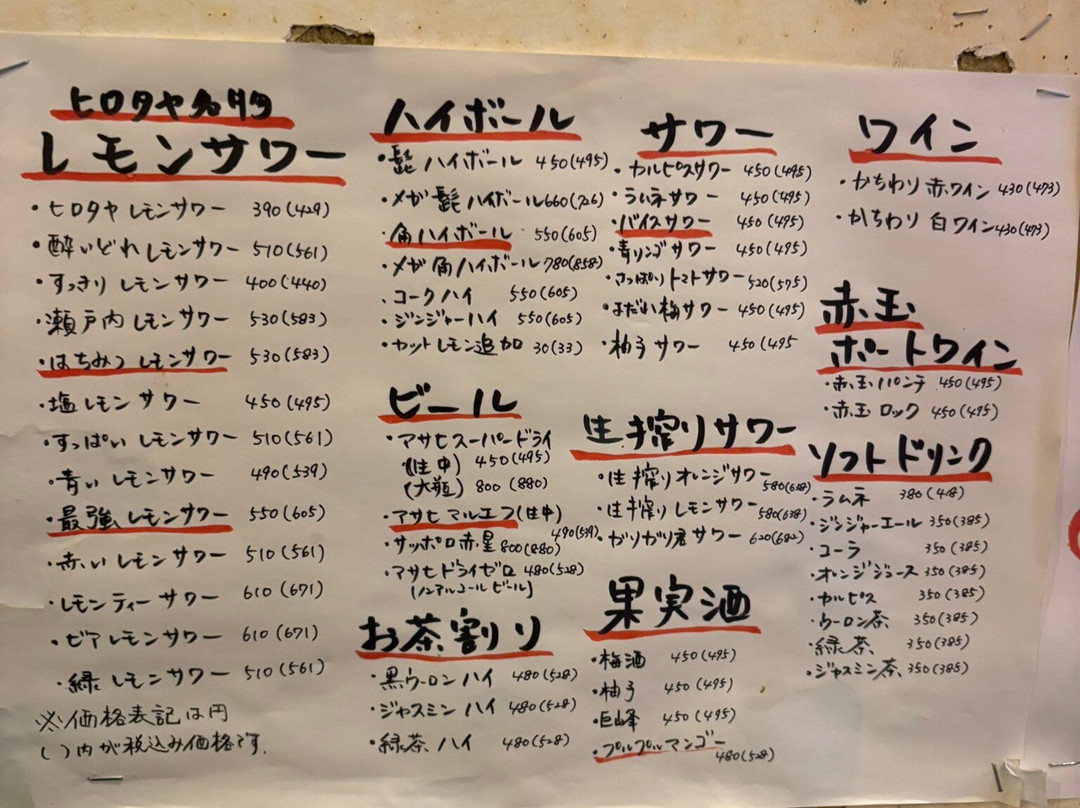 ヒロタヤ名物
レモンサワー
・ヒロタヤ レモンサワー 390(429)
・酔いどれ レモンサワー 510(561)
・すっきり レモンサワー 400(440)
・瀬戸内 レモンサワー 530(583)
・はちみつ レモンサワー 530(583)
・塩レモンサワー 450(495)
・すっぱい レモンサワー 510(561)
・青い レモンサワー 490(539)
・最強 レモンサワー 550(605)
・赤い レモンサワー 510(561)
・レモンティーサワー 610(671)
・ビアレモンサワー 610(671)
・緑レモンサワー 510(561)
※価格表記は円
( )内が税込み価格です.
ハイボール
・髭 ハイボール 450(495)
・メガ 髭 ハイボール 660(726)
・角ハイボール 550(605)
・メガ 角ハイボール 780(858)
・コークハイ 550(605)
・ジンジャーハイ 550(605)
・カットレモン追加 30(33)
ビール
・アサヒスーパードライ
(生中) 450(495)
(大瓶) 800(880)
・アサヒ マルエフ(生中) 490(539)
・サッポロ赤星 800(880)
・アサヒドライゼロ 480(528)
(ノンアルコールビール)
お茶割り
・黒ウーロンハイ 480(528)
・ジャスミンハイ 480(528)
・緑茶ハイ 480(528)
サワー
・カルピスサワー 450(495)
・ラムネサワー 450(495)
・バイスサワー 450(495)
・青リンゴサワー 450(495)
・さっぱりトマトサワー 520(575)
・よだれ梅サワー 450(495)
・柚子サワー 450(495
生搾りサワー
・生搾りオレンジサワー 580(638)
・生搾りレモンサワー 580(638)
・ガリガリ君サワー 620(682)
果実酒
・梅酒 450(495)
・柚子 450(495)
・巨峰 450(495)
・プルプルマンゴー 480(528)
ワイン
・かちわり 赤ワイン 430(473)
・かちわり 白ワイン 430(473)
赤玉
ポートワイン
・赤玉パンチ 450(495)
・赤玉ロック 450(495)
ソフトドリンク
・ラムネ 380(418)
・ジンジャーエール 350(385)
・コーラ 350(385)
・オレンジジュース 350(385)
・カルピス 350(385)
・ウーロン茶 350(385)
・緑茶 350(385)
・ジャスミン茶 350(385)